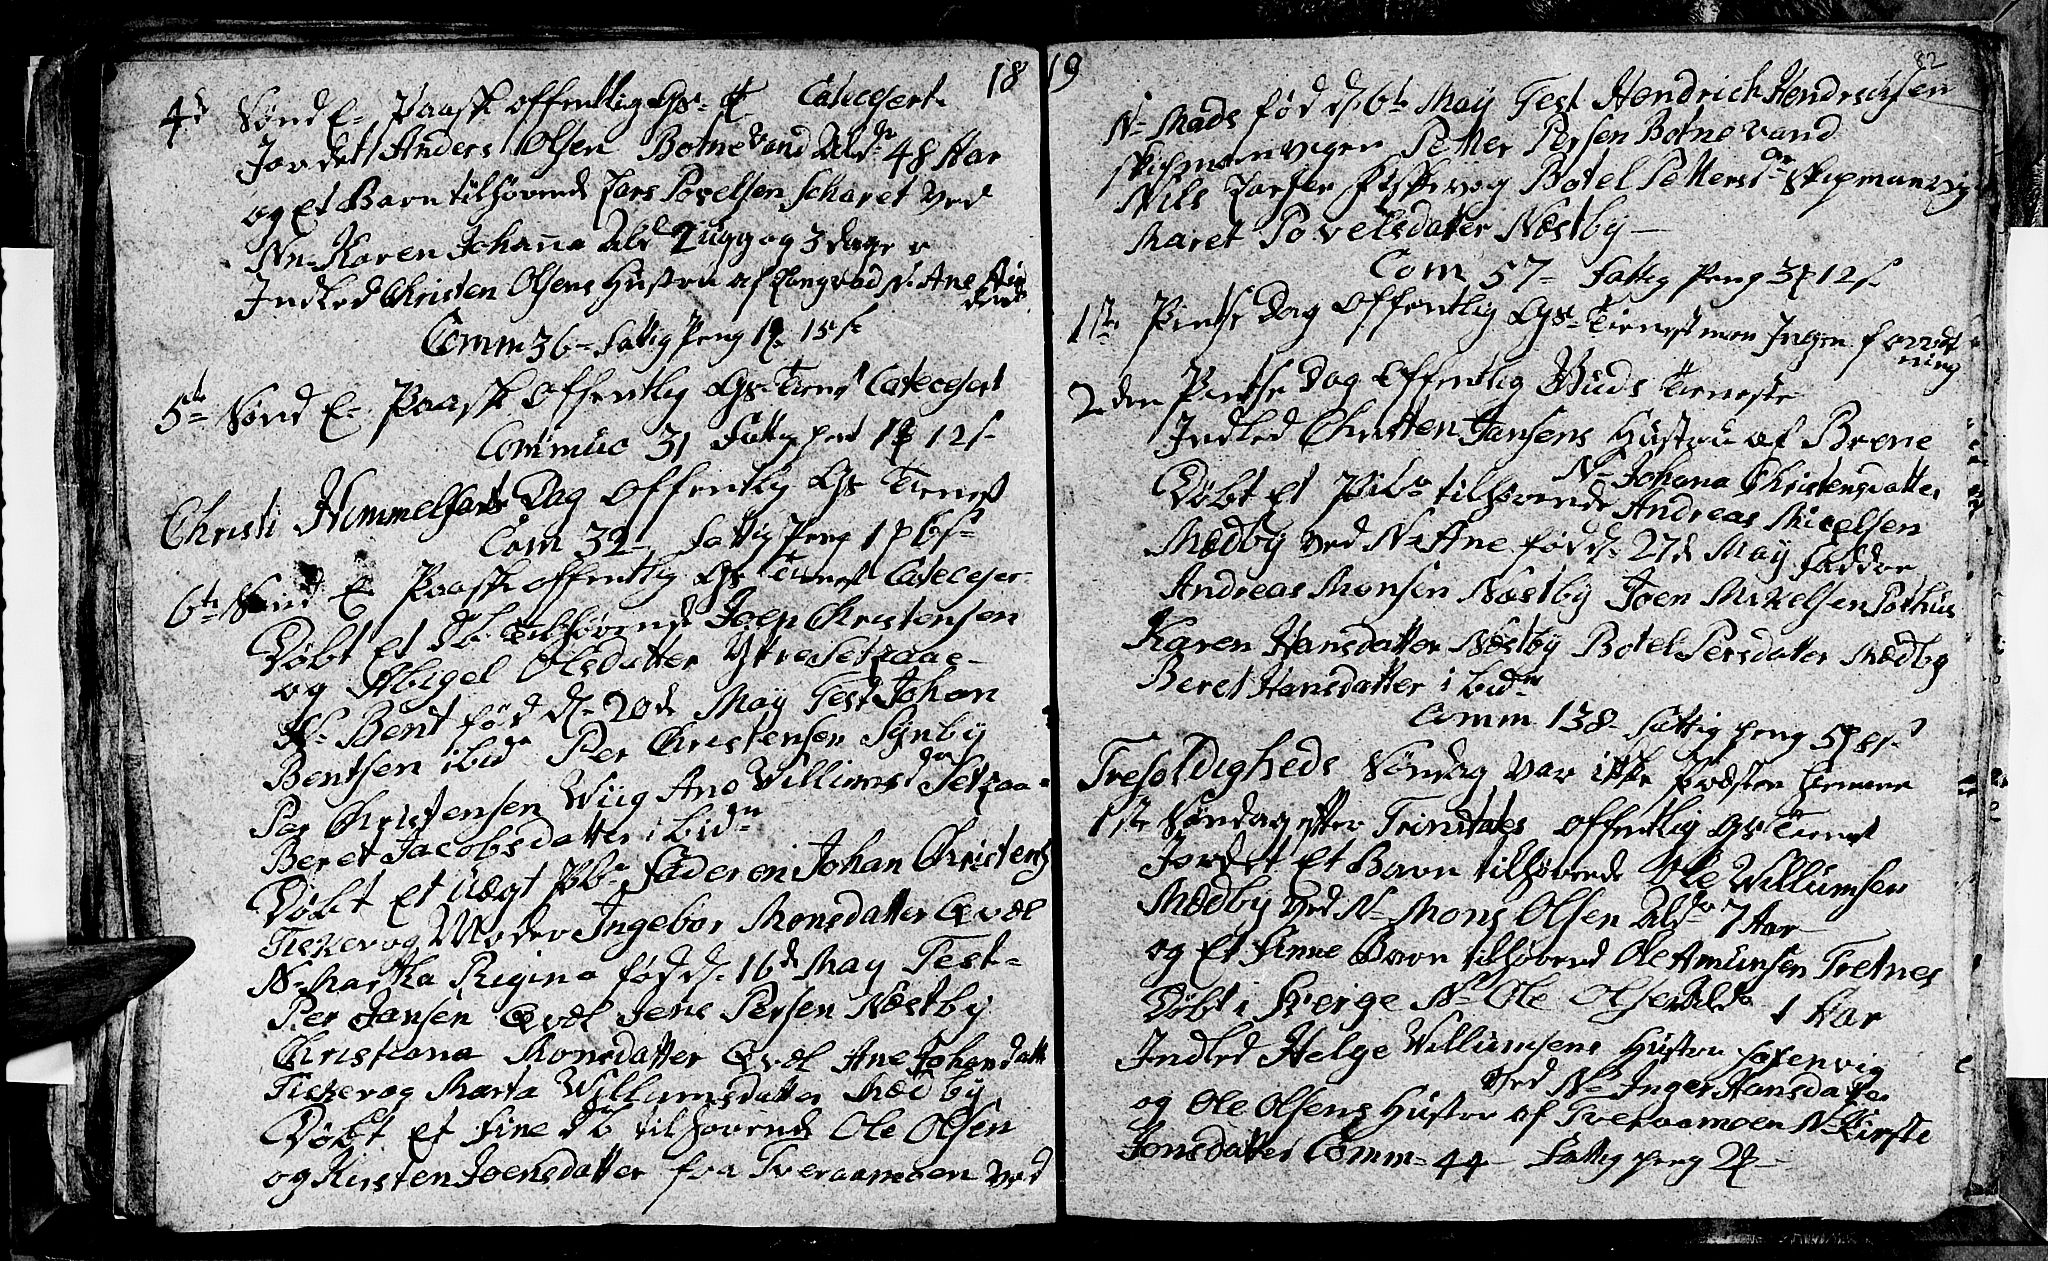 18
4d Sønd E. Paask offentlig Gs. Catecesert.
Jordet Anders Olsen Botnevand Ald. 48 Aar
og et Barn tilhørende Lars Povelsen Scharet ved
Nn. Karen Johanna Ald 2 ugg og 3 dage
Indled Christen Olsens Hustru af N. Ane
Comm 36 - Fattig Peng 1 15 s
5te Sønd E. Paask Offentlig Gs. Tienest Catecesert
Commuc 31 Fattig 1 12 s
Christi Himmelfarts Dag offentlig Gs Tienest
Com 32 - Fattig Peng 1 6 s
6te Sønd E. Paask offentlig Gs Tienest Cateceser
Døbt et db. tilhørende Joen Christensen
og Abigel Olsdatter Ytre Setzaae
N. Bent fød d. 20de Maÿ Test Johan
Bentsen ibid Per Christensen Synby
Per Christensen Wiig Ane Willumsdr Setzaa
Beret Jacobsdatter ibidm
Døbt et Uægt Pb. Faderen Johan Christens
Fiskevog Moder Ingebor Monsdatter Qvæl
N. Martha Regina fød d. 16de May Test
Per Jansen Qvæl Jens Persen Næstby
Christiana Monsdatter Qvæl Ane Johansdatt
Fiskevog Marta Willumsdatter Mædby
Døbt et Fine db tilhørende Ole Olsen
og Kirsten Joensdatter fra Tveraamoen ved
19
82
N. Mads fød d. 6te Maÿ Test Hendrich Hendrichsen
Skipmanvigen Petter Persen Botnevand
Nils Larsen Fiskevog Botel Pettersdr Skipmanvig
Maret Povelsdatter Næstby
Com 57 - Fattig Peng 3 12 s
1ste Pintse Dag offentlig Gs. Tienest men Ingen forret
ning
2den Pintse Dag offentlig Guds Tieneste
Indled Christen Jansens Hustru af Brene
N. Johana Christensdatter
Døbt et Pib. tilhørende Andreas Micelsen
Mædby ved N. Ane fød d. 27de Maÿ Faddre
Andreas Monsen Næstby Joen Mikelsen Pothus
Karen Hansdatter Næstby Botel Persdatter Mædby
Beret Hansdatter ibidm
Comm 138 - Fattig peng 5 8 s
Trefoldigheds Søndag var ikke Præsten hiemme
1ste Søndag efter Trinitates offentlig Gs Tienest
Jordet Et Barn tilhørende Ole Willumsen
Mædby ved N. Mons Olsen Ald 7 Aar
og Et Finne Barn tilhørend Ole Amunsen Tretnes
Døbt i Sverige N. Ole Olsen Ald 1 Aar
Indled Helge Willumsens Hustru Saxenvig
ved N. Inger Hansdatter
og Ole Olsens Hustru af Tveraamoen N. Kirste
Jonsdatter Comm - 44 - Fattig peng 2